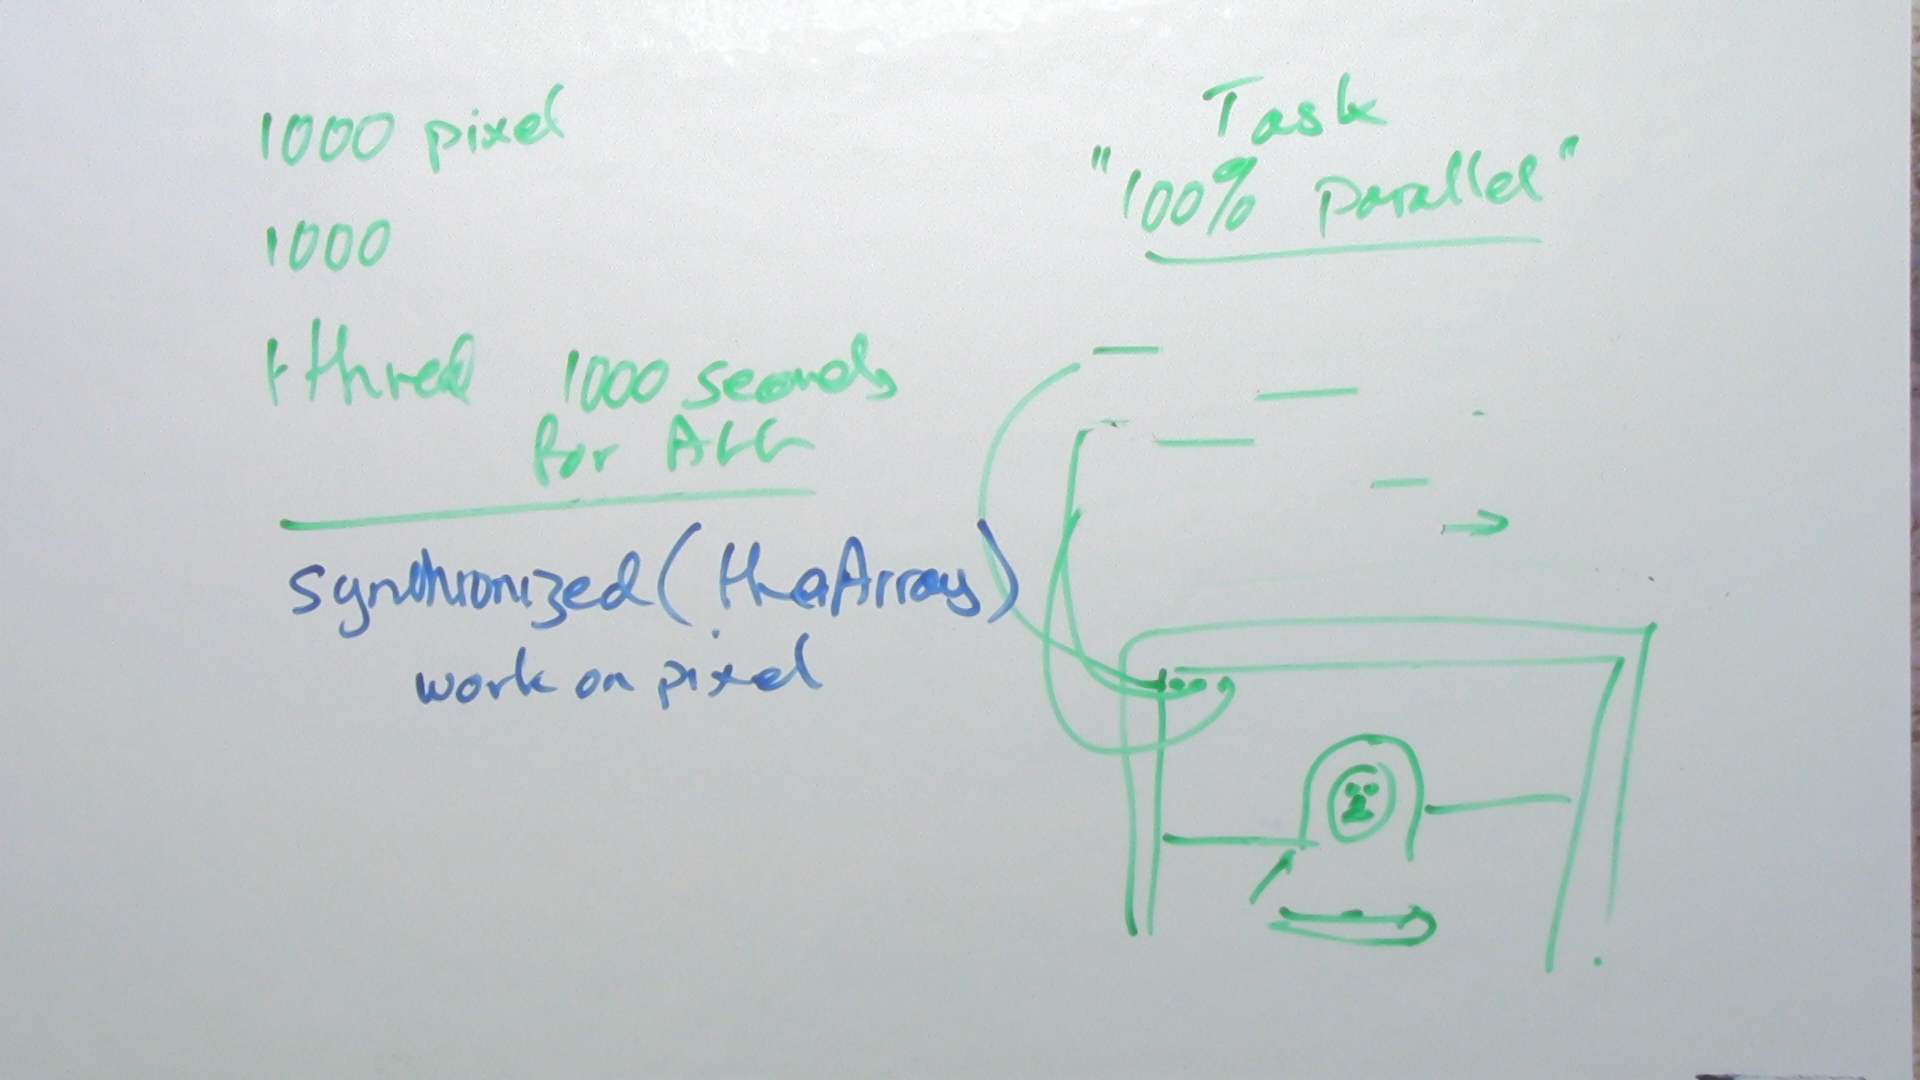 1000 pixel
1000
1 thread 1000 seconds
for ALL
synchronized(theArray)
work on pixel
Task
"100% parallel"